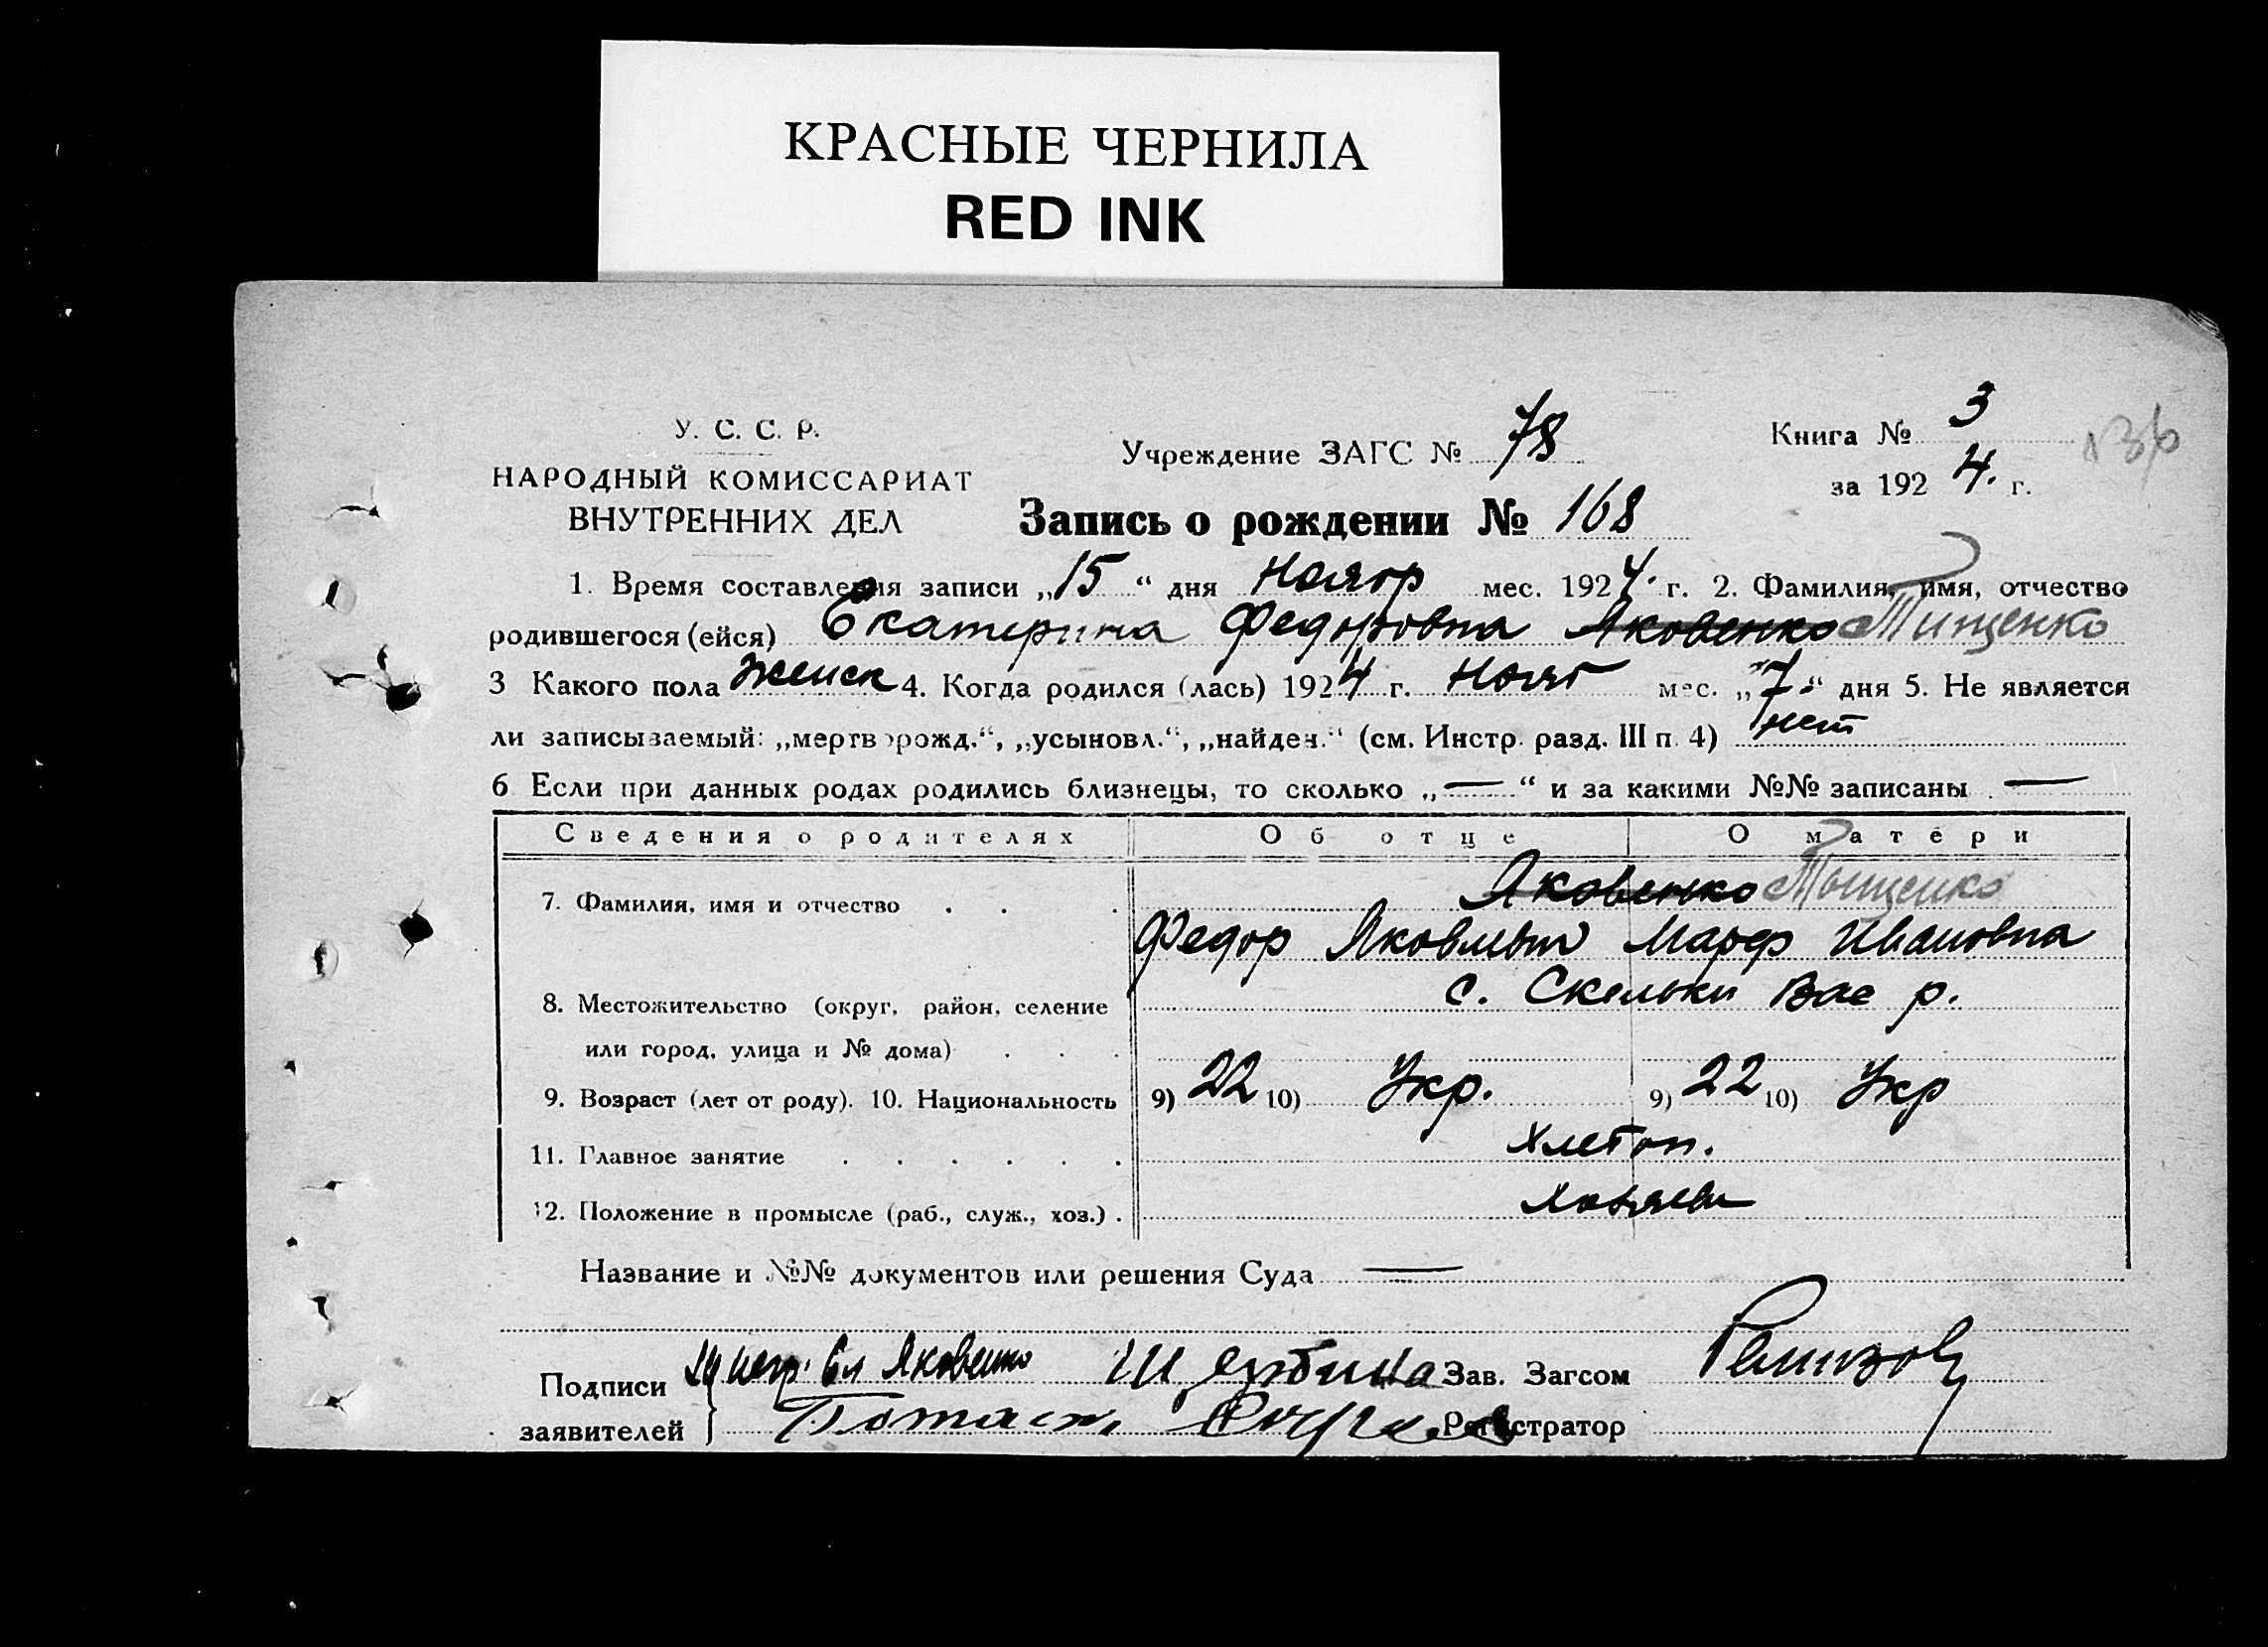 КРАСНЫЕ ЧЕРНИЛА
RED INK
У. С. С. Р.
НАРОДНЫЙ КОМИССАРИАТ
ВНУТРЕННИХ ДЕЛ
Учреждение ЗАГС № 78
Книга № 3
за 1924. г.
136
Запись о рождении № 168
1. Время составления записи „15“ дня Нояbр мес. 1924. г. 2. Фамилия, имя, отчество
родившегося (ейся) Екатерина Федоровна Яковенко Тищенко
3 Какого пола женск 4. Когда родился (лась) 1924 г. Нояб мес. „7“ дня 5. Не является
ли записываемый: „мертворожд.“, „усыновл.“, „найден.“ (см. Инстр. разд. III п. 4) нет
6 Если при данных родах родились близнецы, то сколько „—“ и за какими №№ записаны —
Сведения о родителях Об отце О матери
7. Фамилия, имя и отчество . . . Яковенко Тыщенко
Федор Яковлевич Марф Ивановна
8. Местожительство (округ, район, селение с. Скельки Вас р.
или город, улица и № дома) . . .
9. Возраст (лет от роду). 10. Национальность 9) 22 10) Укр. 9) 22 10) Укр
11. Главное занятие . . . . . . Хлебоп.
12. Положение в промысле (раб., служ., хоз.) . Хозяева
Название и №№ документов или решения Суда —
Подписи Яковенко Щербина Зав. Загсом Ремизов
заявителей Регистратор